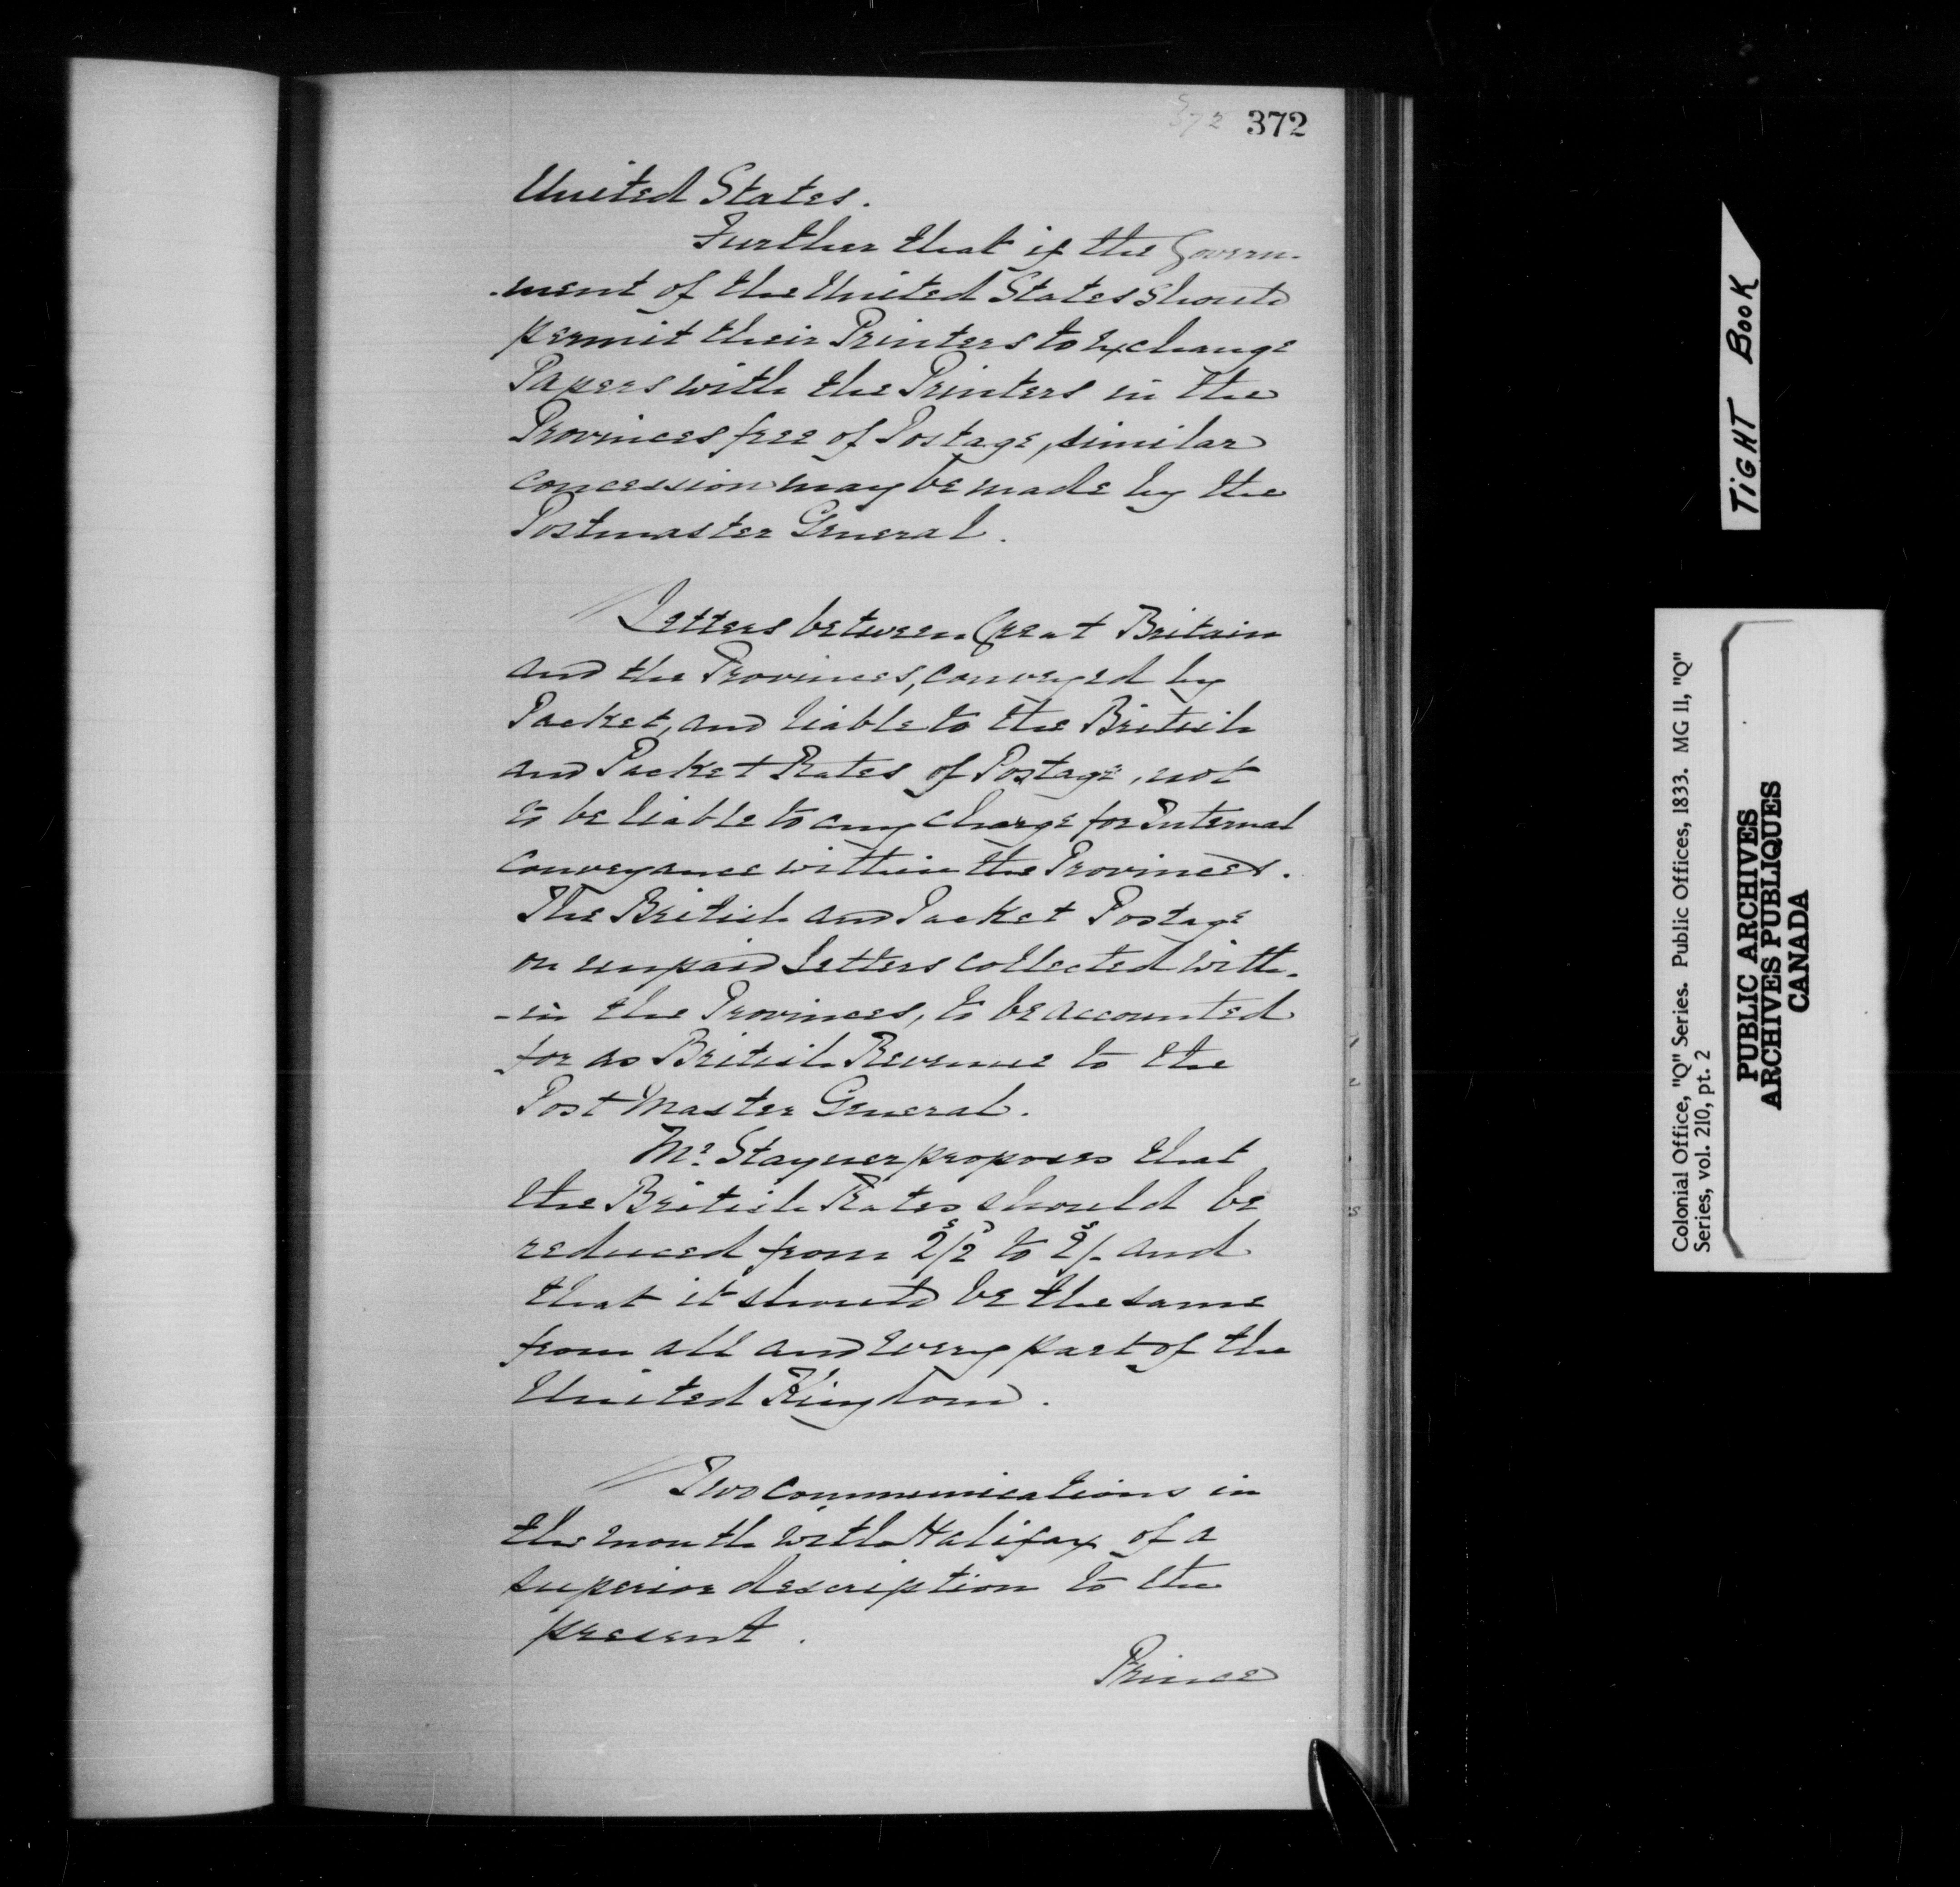 372 372
United States.
Further that if the Govern-
-ment of the United States should
permit their Printers to Exchange
Papers with the Printers in the
Provinces free of Postage, similar
concession may be made by the
Postmaster General.
Letters between Great Britain
and the Provinces, conveyed by
Packet, and liable to the British
and Packet Rates of Postage, not
to be liable to any charge for Internal
conveyance within the Provinces.
The British and Packet Postage
on unpaid Letters collected with-
-in the Provinces, to be accounted
for as British Revenue to the
Post Master General.
Mr. Stayner proposes that
the British Rates should be
reduced from 2s/2d to 2s/- and
that it should be the same
from all and every part of the
United Kingdom.
Two communications in
the month with Halifax of a
superior description to the
present.
Prince
TIGHT BOOK
Colonial Office, "Q" Series. Public Offices, 1833. MG 11, "Q"
Series, vol. 210, pt. 2
PUBLIC ARCHIVES
ARCHIVES PUBLIQUES
CANADA